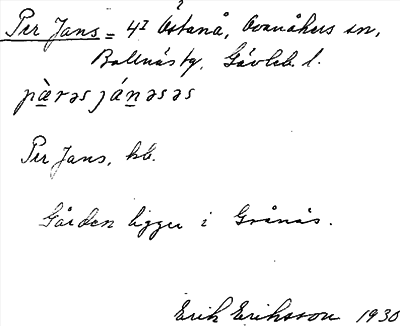 Per Jans = 4² Östanå, Ovanåkers sn,
Bollnäs tg, Gävleb. l.
pɑ̀rəs jánəsəs
Per Jans, hb.
Gården ligger i Grånäs.
Erik Eriksson 1930